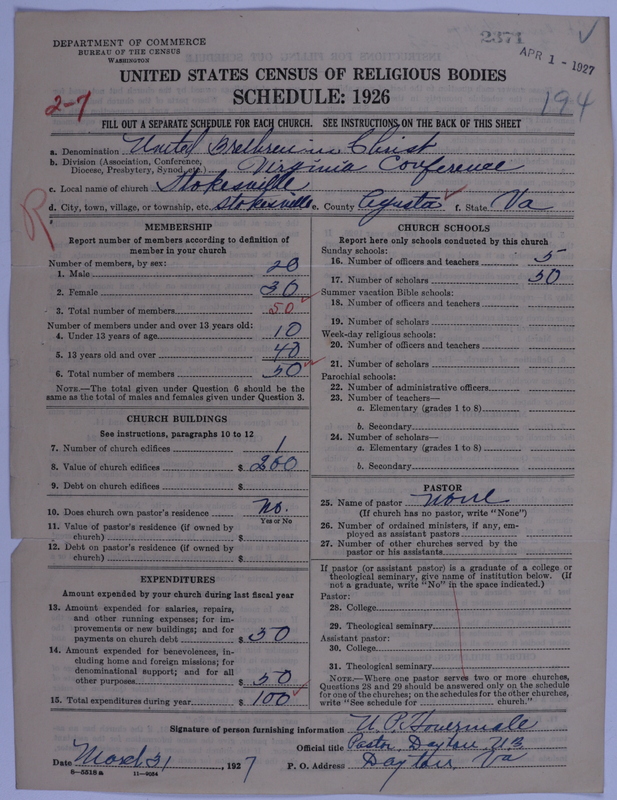 2371
APR 1 - 1927
DEPARTMENT OF COMMERCE
BUREAU OF THE CENSUS
WASHINGTON
UNITED STATES CENSUS OF RELIGIOUS BODIES
SCHEDULE: 1926
2-7
194
FILL OUT A SEPARATE SCHEDULE FOR EACH CHURCH. SEE INSTRUCTIONS ON THE BACK OF THIS SHEET
a. Denomination United Brethren in Christ
b. Division (Association, Conference, Diocese, Presbytery, Synod, etc.) Virginia Conference
c. Local name of church Stokesville
d. City, town, village, or township, etc. Stokesville e. County Agusta f. State Va
R
MEMBERSHIP
Report number of members according to definition of
member in your church
Number of members, by sex:
1. Male 20
2. Female 30
3. Total number of members 50
Number of members under and over 13 years old:
4. Under 13 years of age 10
5. 13 years old and over 40
6. Total number of members 50
NOTE.—The total given under Question 6 should be the
same as the total of males and females given under Question 3.
CHURCH BUILDINGS
See instructions, paragraphs 10 to 12
7. Number of church edifices 1
8. Value of church edifices $ 200
9. Debt on church edifices $
10. Does church own pastor's residence No.
Yes or No
11. Value of pastor's residence (if owned by
church) $
12. Debt on pastor's residence (if owned by
church) $
EXPENDITURES
Amount expended by your church during last fiscal year
13. Amount expended for salaries, repairs,
and other running expenses; for im-
provements or new buildings; and for
payments on church debt $ 50
14. Amount expended for benevolences, in-
cluding home and foreign missions; for
denominational support; and for all
other purposes $ 50
15. Total expenditures during year $ 100
CHURCH SCHOOLS
Report here only schools conducted by this church
Sunday schools:
16. Number of officers and teachers 5
17. Number of scholars 50
Summer vacation Bible schools:
18. Number of officers and teachers
19. Number of scholars
Week-day religious schools:
20. Number of officers and teachers
21. Number of scholars
Parochial schools:
22. Number of administrative officers
23. Number of teachers—
a. Elementary (grades 1 to 8)
b. Secondary
24. Number of scholars—
a. Elementary (grades 1 to 8)
b. Secondary
PASTOR
25. Name of pastor None
(If church has no pastor, write "None")
26. Number of ordained ministers, if any, em-
ployed as assistant pastors
27. Number of other churches served by the
pastor or his assistants
If pastor (or assistant pastor) is a graduate of a college or
theological seminary, give name of institution below. (If
not a graduate, write "No" in the space indicated.)
Pastor:
28. College
29. Theological seminary
Assistant pastor:
30. College
31. Theological seminary
NOTE.—Where one pastor serves two or more churches,
Questions 28 and 29 should be answered only on the schedule
for one of the churches; on the schedules for the other churches,
write "See schedule for church."
Signature of person furnishing information
Official title Pastor, Dayton
Date 31, 1927 P. O. Address Dayton, Va
8-5518a 11-9024